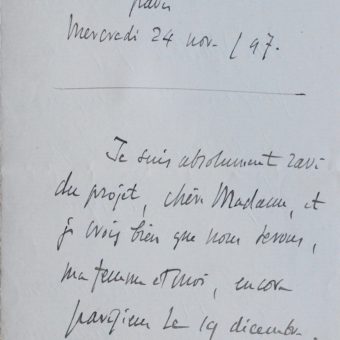 Paris
Mercredi 24 nov. / 97.
Je suis absolument ravi
du projet, chère Madame, et
je crois bien que nous serons,
ma femme et moi, encore
parisiens le 19 décembre.